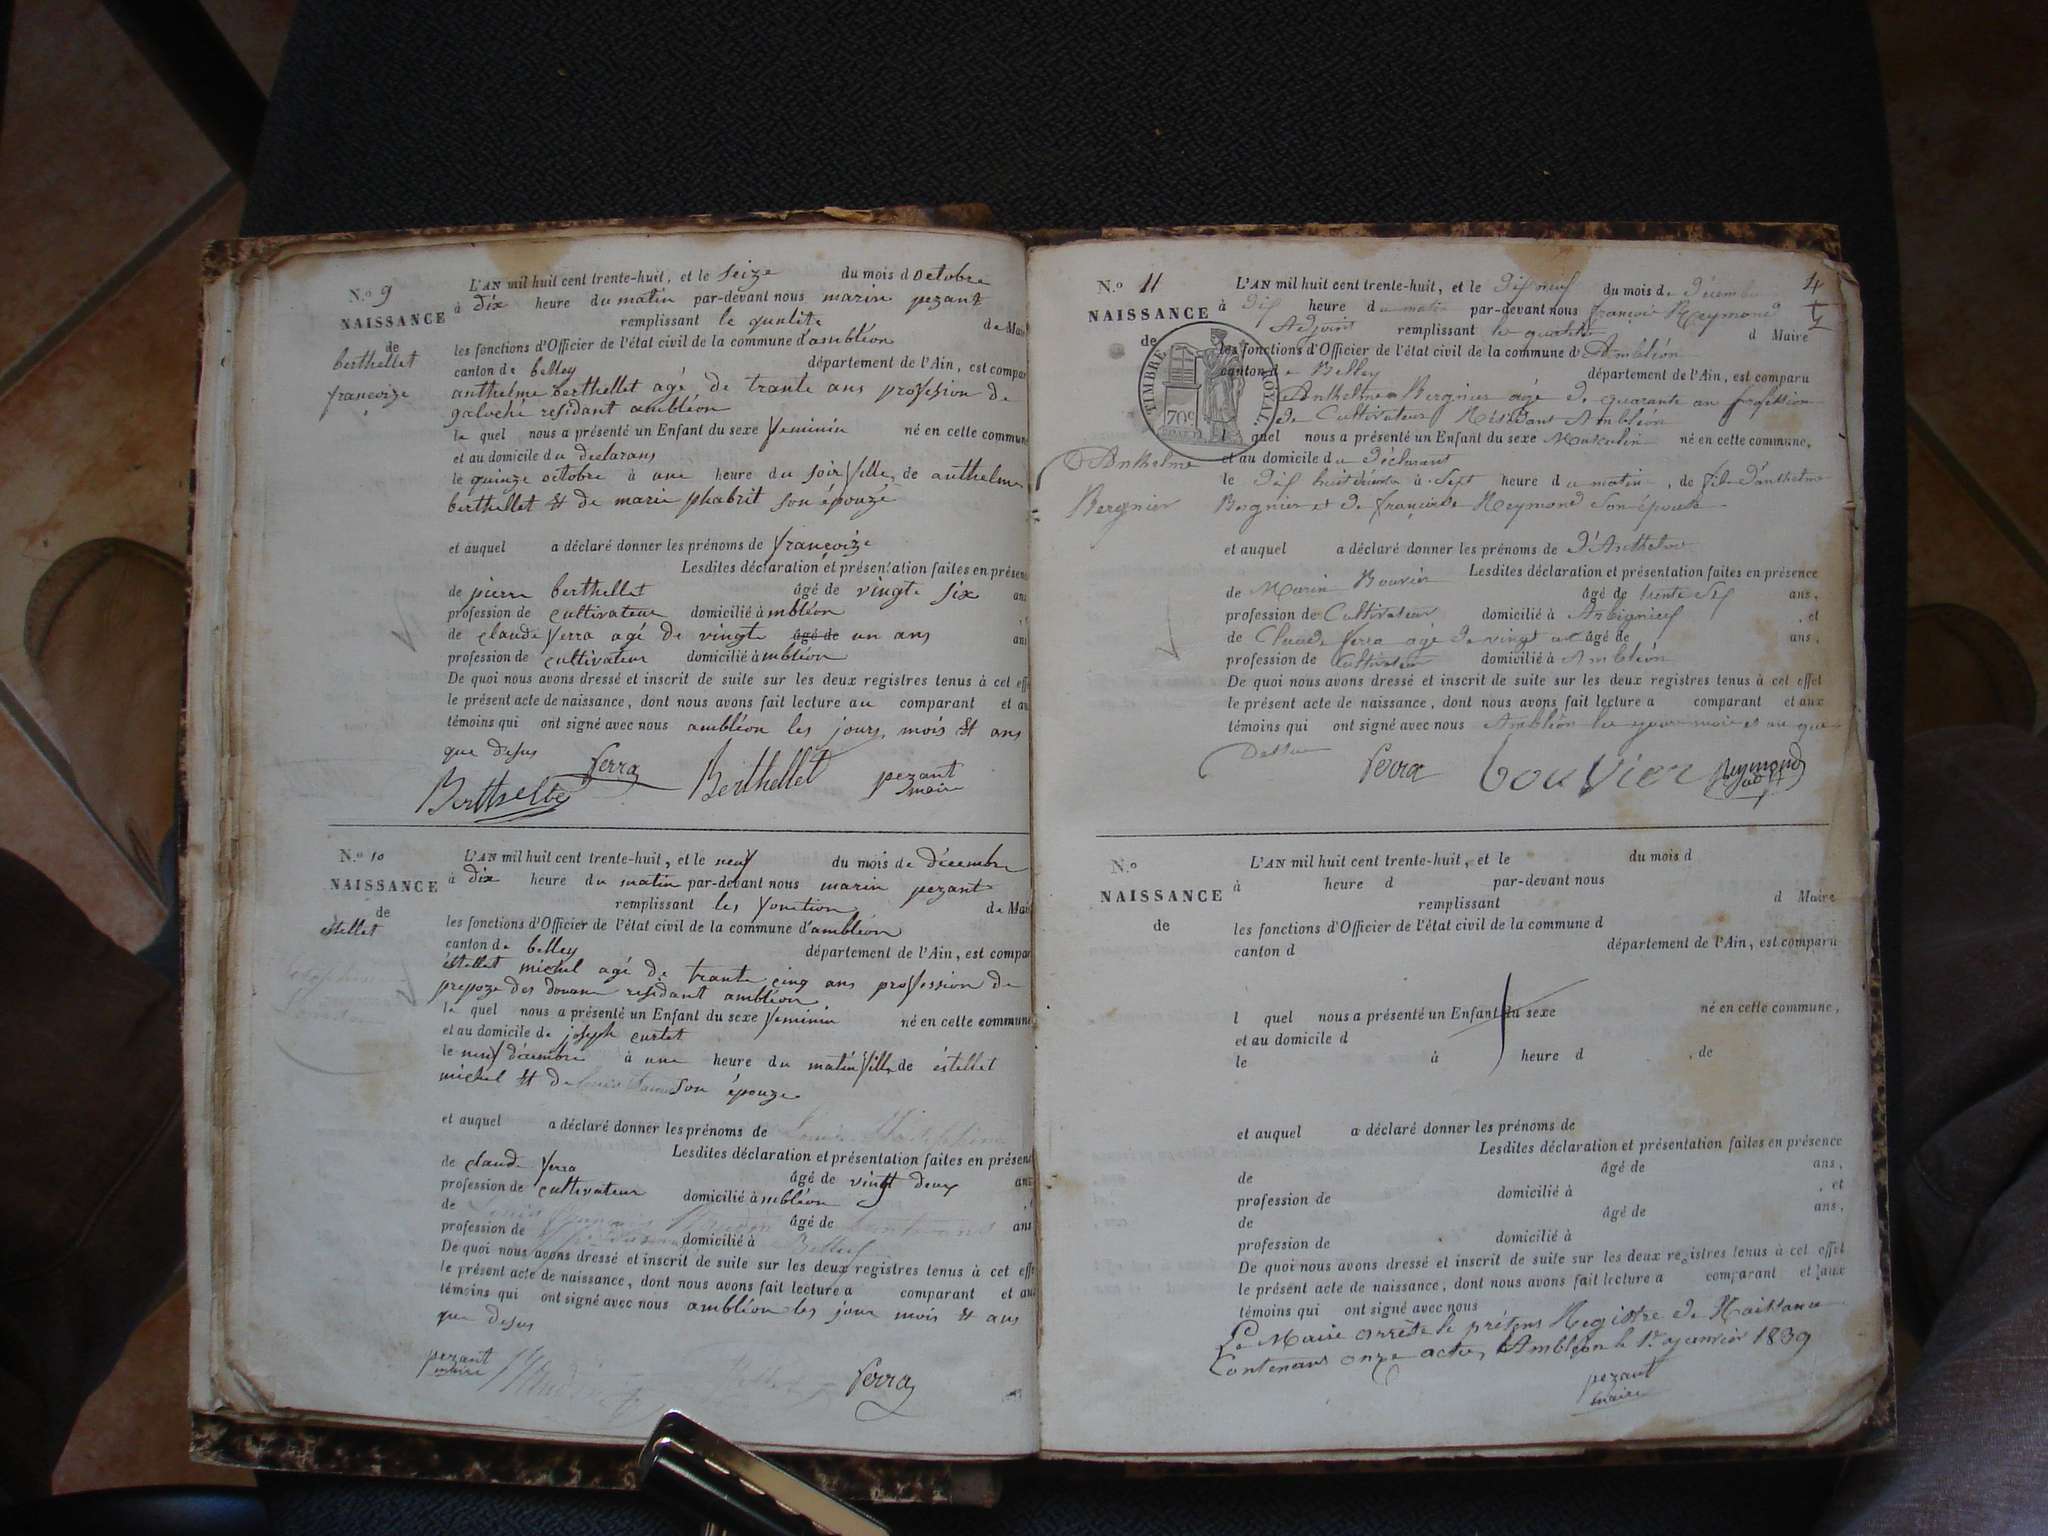 N.º 9
NAISSANCE
de
berthellet
françoize
L'AN mil huit cent trente-huit, et le seize du mois d octobre
à dix heure du matin par-devant nous marin pezant
remplissant le qualite de Mai
les fonctions d'Officier de l'état civil de la commune d'ambléon
canton de belley département de l'Ain, est compar
anthelme berthellet agé de trante ans profession de
galoché residant ambléon
le quel nous a présenté un Enfant du sexe feminin né en cette commun
et au domicile du declarans
le quinze octobre à une heure du soir fille de anthelme
berthellet et de marie phabrit son épouze
et auquel a déclaré donner les prénoms de françoize
Lesdites déclaration et présentation faites en présen
de pierre berthellet âgé de vingte six ans
profession de cultivateur domicilié à mbléon
de claude ferra agé de vingte âgé de un ans ans
profession de cultivateur domicilié à mbléon
De quoi nous avons dressé et inscrit de suite sur les deux registres tenus à cet eff
le présent acte de naissance, dont nous avons fait lecture au comparant et au
témoins qui ont signé avec nous ambléon les jours mois et ans
que desus
ferra
Berthellet Berthellet pezant
maire
N.º 10
NAISSANCE
de
estellet
L'AN mil huit cent trente-huit, et le neuf du mois de décembre
à dix heure du matin par-devant nous marin pezant
remplissant les fonction de Mai
les fonctions d'Officier de l'état civil de la commune d'ambléon
canton de belley département de l'Ain, est compar
éstellet michel agé de trante cinq ans profession de
prepoze des douane residant ambléon
le quel nous a présenté un Enfant du sexe feminin né en cette commune
et au domicile de joseph curtet
le neuf décembre à une heure du matin fille de éstellet
michel et de son épouze
et auquel a déclaré donner les prénoms de
Lesdites déclaration et présentation faites en présen
de claude ferra âgé de vingt deux ans
profession de cultivateur domicilié à mbléon
de âgé de ans
profession de domicilié à
De quoi nous avons dressé et inscrit de suite sur les deux registres tenus à cet eff
le présent acte de naissance, dont nous avons fait lecture a comparant et aux
témoins qui ont signé avec nous ambléon les jour mois et ans
que desus
pezant
maire
ferra
N.º 11
NAISSANCE
de
Anthelme
Bergnier
TIMBRE ROYAL.
70c
4
L'AN mil huit cent trente-huit, et le Dix neuf du mois de Décembre
à Dix heure du matin par-devant nous françois Reymond
Adjoint remplissant les qualité d Maire
les fonctions d'Officier de l'état civil de la commune d'Ambléon
canton de Belley département de l'Ain, est comparu
Anthelme Bergnier agé de quarante an profession
de Cultivateur Résidant Ambléon
l quel nous a présenté un Enfant du sexe Masculin né en cette commune,
et au domicile du Déclarant
le Dix huit décembre à Sept heure du matin, de fils d'anthelme
Bergnier et de françoise Reymond son épouse
et auquel a déclaré donner les prénoms de d'Anthelme
Lesdites déclaration et présentation faites en présence
de Marin Bouvier âgé de trente ans,
profession de Cultivateur domicilié à Arbignieu, et
de Claude ferra agé de vingt un âgé de ans,
profession de Cultivateur domicilié à Ambléon
De quoi nous avons dressé et inscrit de suite sur les deux registres tenus à cet effet
le présent acte de naissance, dont nous avons fait lecture a comparant et aux
témoins qui ont signé avec nous Ambléon les jour mois et an que
Dessus
ferra bouvier Reymond
adjt
N.º
NAISSANCE
de
L'AN mil huit cent trente-huit, et le du mois d
à heure d par-devant nous
remplissant d Maire
les fonctions d'Officier de l'état civil de la commune d
canton d département de l'Ain, est comparu
l quel nous a présenté un Enfant du sexe né en cette commune,
et au domicile d
le à heure d , de
et auquel a déclaré donner les prénoms de
Lesdites déclaration et présentation faites en présence
de âgé de ans,
profession de domicilié à , et
de âgé de ans,
profession de domicilié à
De quoi nous avons dressé et inscrit de suite sur les deux registres tenus à cet effet
le présent acte de naissance, dont nous avons fait lecture a comparant et aux
témoins qui ont signé avec nous
Le Maire arrête le présent Registre de Naissance
Contenant onze actes, Ambléon le 1er janvier 1839
pezant
maire